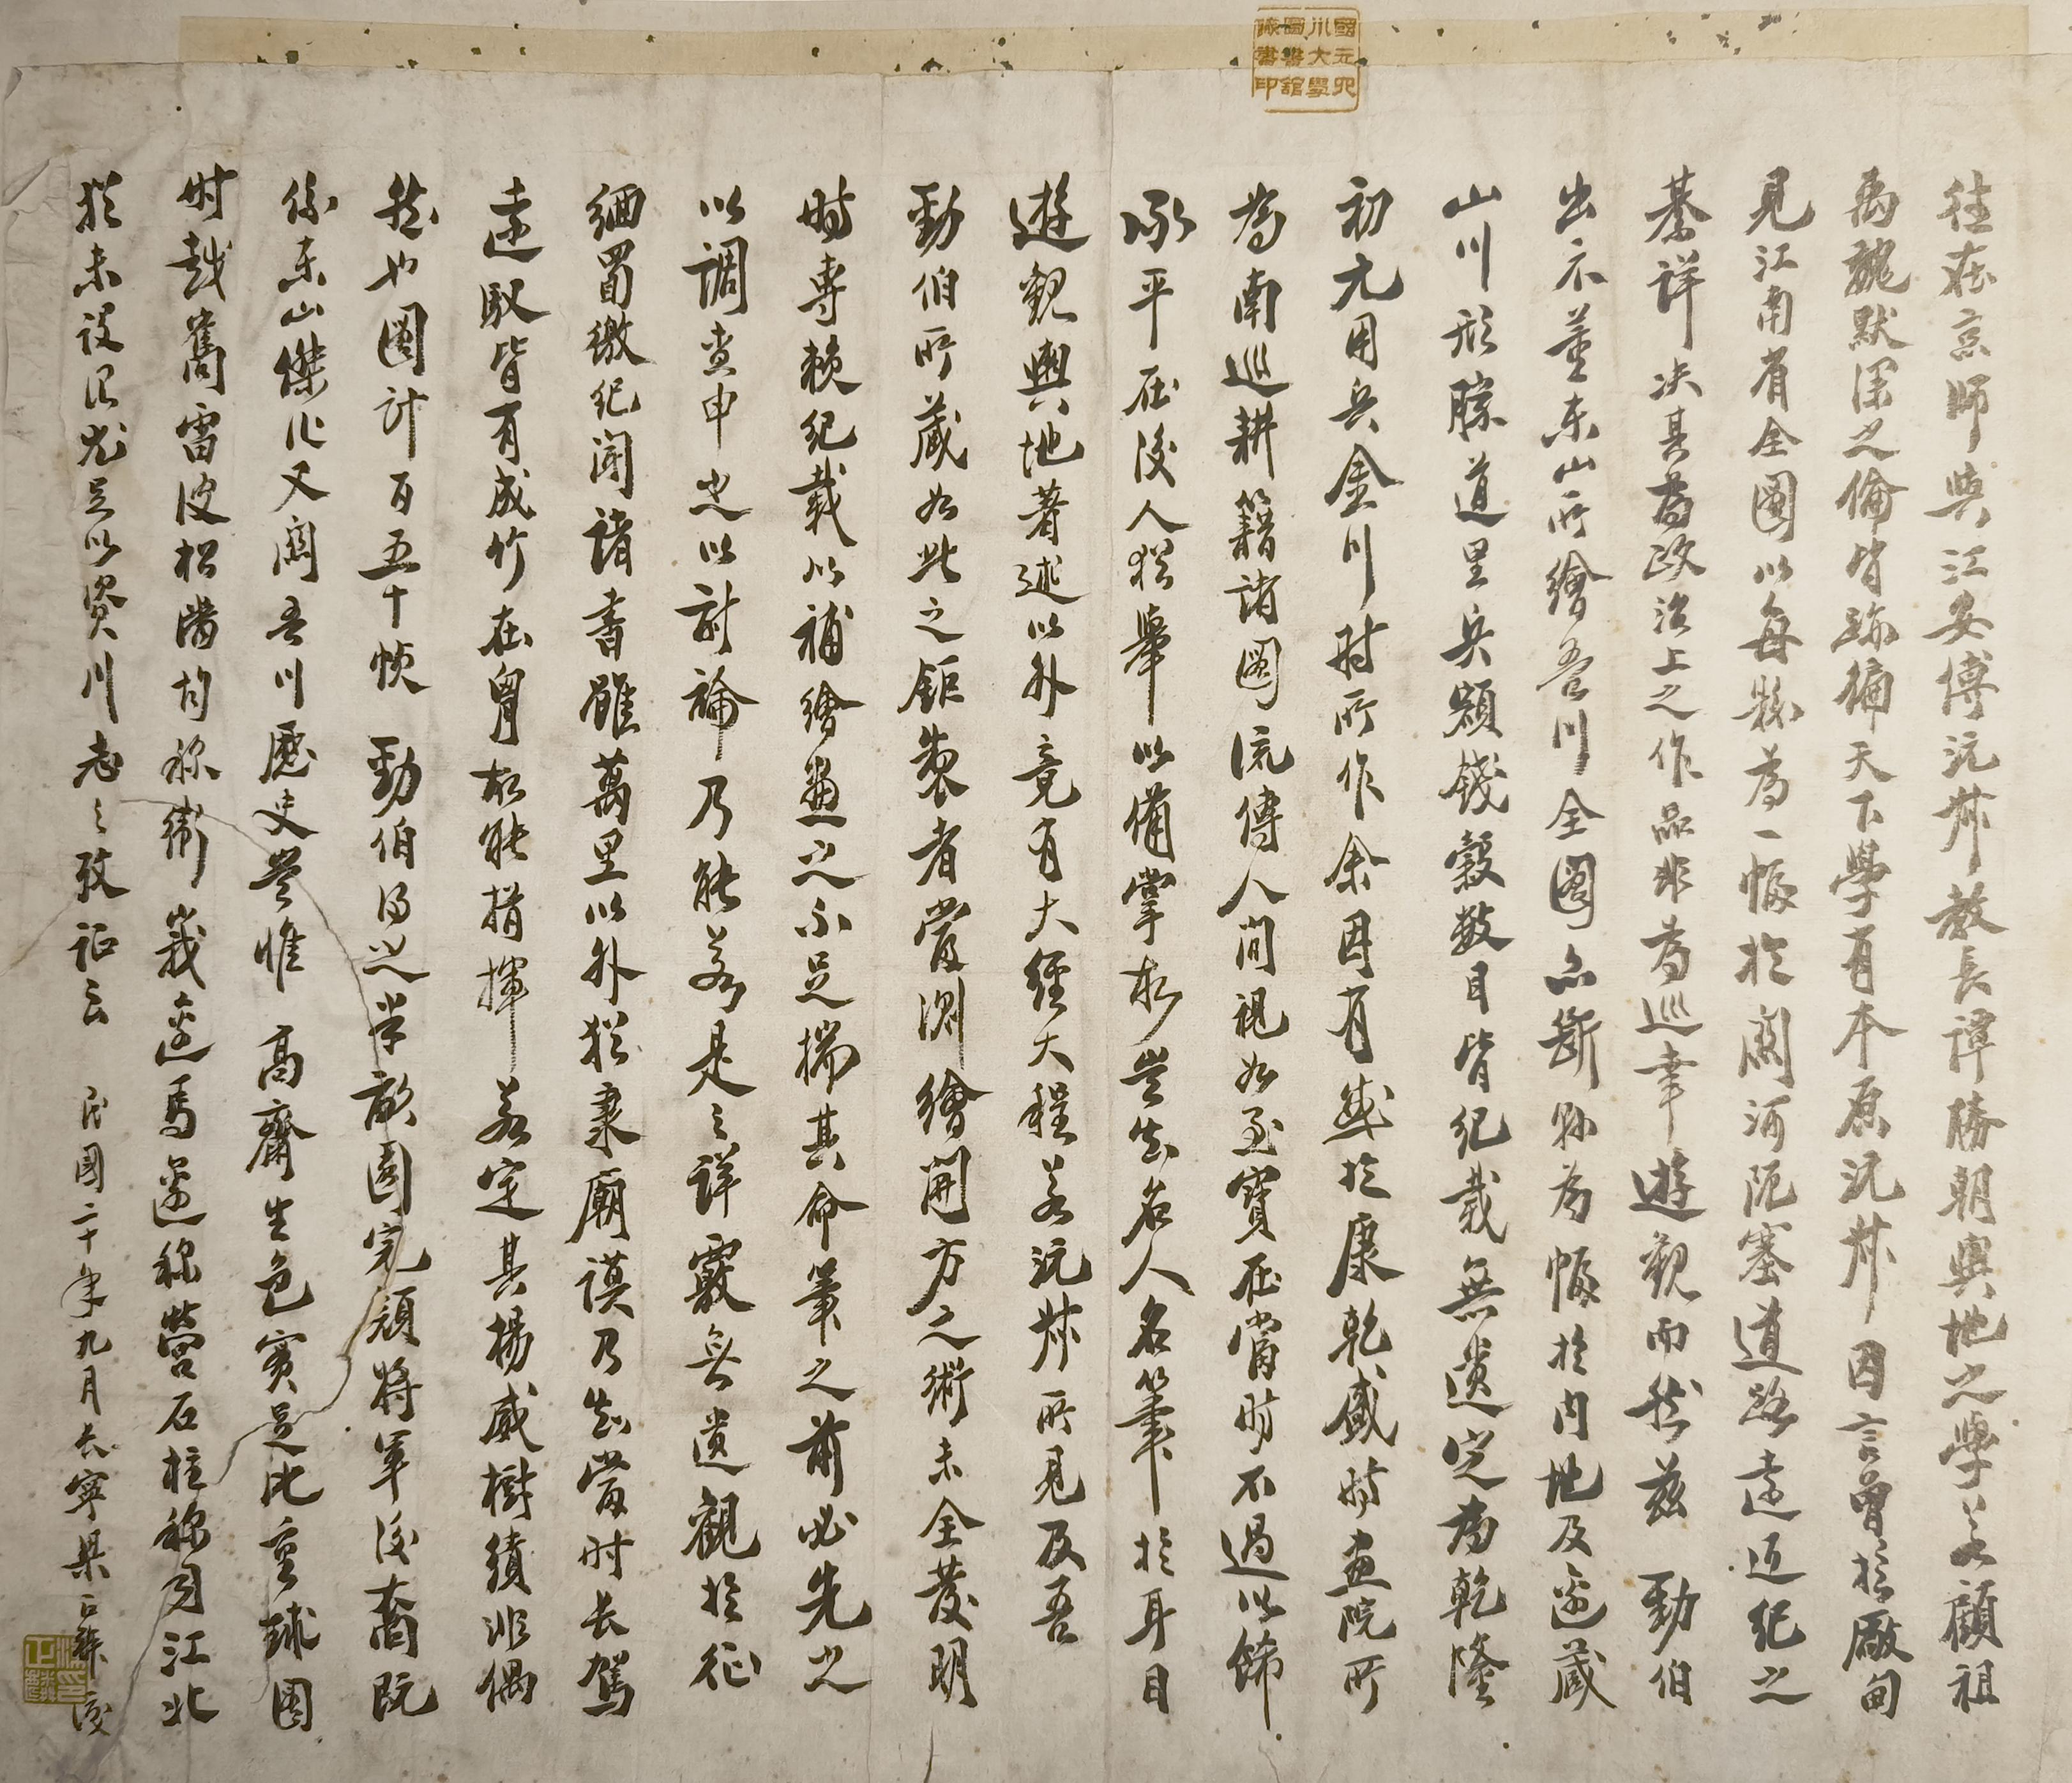 往在京師與江安傅沅叔教長譚勝朝輿地之學若顧祖
禹魏默深之倫皆跡徧天下學有本原沅叔因言曾於廠甸
見江南省全圖以每縣為一幅於關河阨塞道路遠近紀之
綦詳決其為政治上之作品非為巡幸遊觀而然茲 勁伯
出示董東山所繪吾川全圖亦斷縣為幅於內地及邊藏
山川形勝道里兵額錢穀數目皆紀載無遺定為乾隆
初元用兵金川時所作余因有感於康乾盛時畫院所
為南巡耕籍諸圖流傳人間視如至寶在當時不過以飾
承平在後人猶舉以備掌故豈知名人名筆於耳目
遊觀輿地著述以外竟有大經大程若沅叔所見及吾
勁伯所藏如此之鉅製者當測繪開方之術未全發明
時專賴紀載以補繪畫之不足揣其命筆之前必先之
以調查申之以討論乃能若是之詳覈無遺觀於征
緬蜀徼紀聞諸書雖萬里以外猶秉廟謨乃知當時長駕
遠馭皆有成竹在胸故能指揮若定其揚威樹績非偶
然也圖計百五十幀 勁伯得之半畝園完顏將軍後裔既
係東山傑作又關吾川歷史豈惟 高齋生色實足比重球圖
時越舊雷波松潘均稱衛峩邊馬邊稱營石柱稱司江北
猶未設治尤足以資川志之攷証云 民國二十年九月長寧梁正麟後